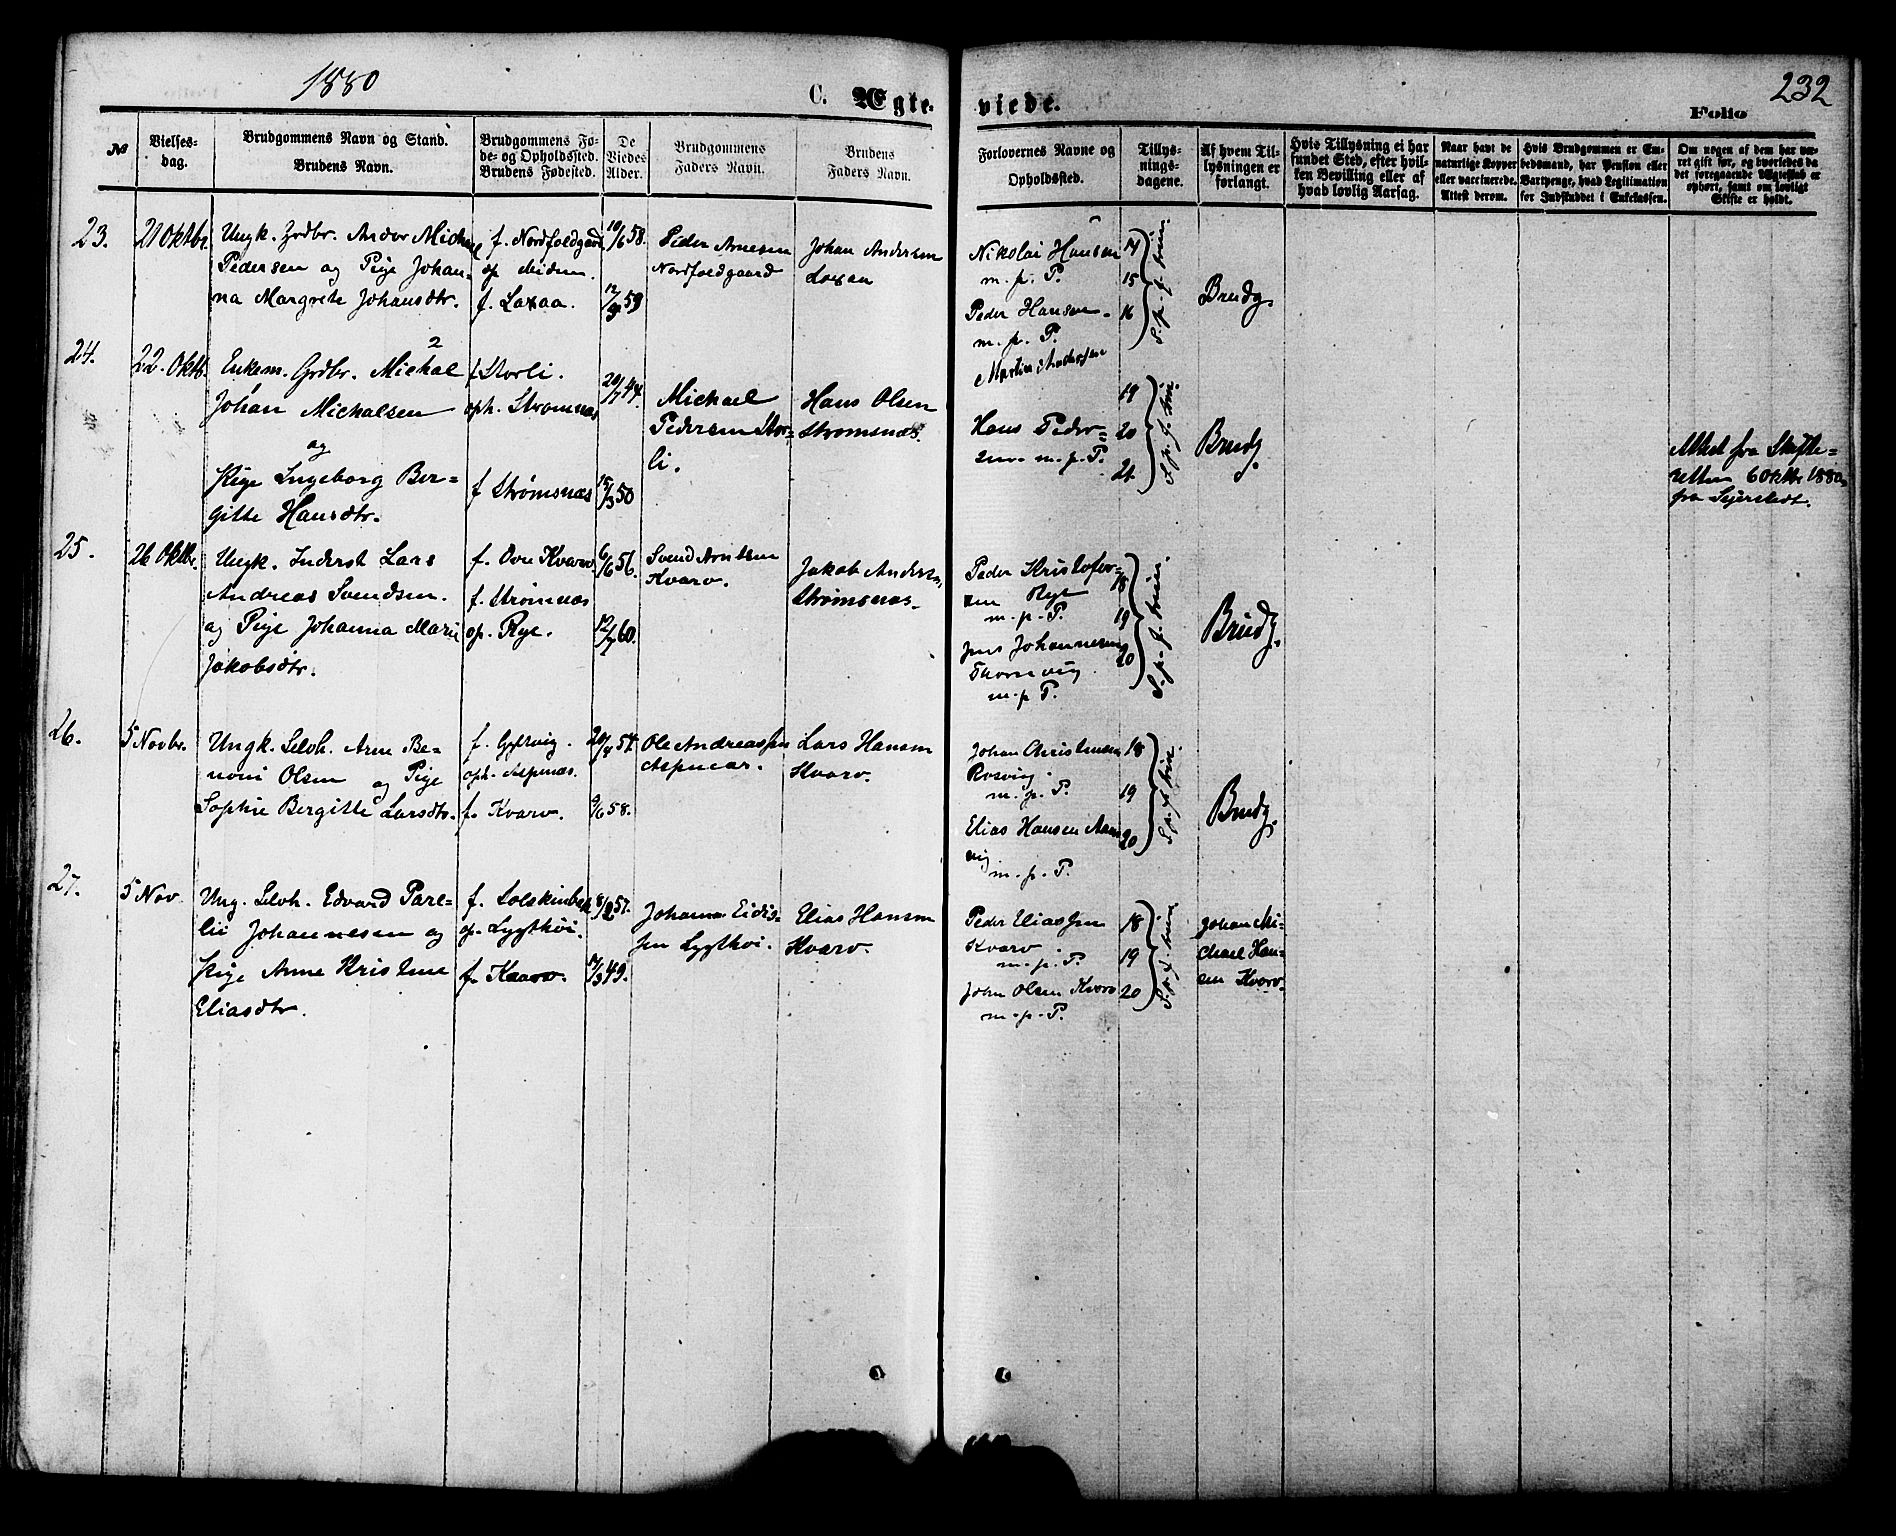 1880
C. Ægte-
viede.
Folio
232
№
Vielses-
dag.
Brudgommens Navn og Stand.
Brudens Navn.
Brudgommens Fø-
de- og Opholdssted.
Brudens Fødested.
De
Viedes
Alder.
Brudgommens
Faders Navn.
Brudens
Faders Navn.
Forlovernes Navne og
Opholdssted.
Tillys-
nings-
dagene.
Af hvem Til-
lysningen er
forlangt.
Hvis Tillysning ei har
fundet Sted, efter hvil-
ken Bevilling eller af
hvad lovlig Aarsag.
Naar havt de
naturlige Kopper
eller vaccinerede.
Attest derom.
Hvis Brudgommen er En-
bedsmand, har Pension eller
Vartpenge, hvad Legitimation
for Indskuddet i Enkekassen.
Om nogen af dem har væ-
ret gift før, og hvorledes da
det foregaaende Ægteskab er
ophørt, samt om lovligt
Skifte er holdt.
23.
21 Oktbr.
Ungk. Grdbr. Andor Michael
Pedersen og Pige Johan-
na Margrete Johansdtr.
f. Nordfoldgaard
op
f. Laxaa.
10/6 58.
12/9 59
Peder Arnesen
Nordfoldgaard
Johan Andersen
Laxaa
Nikolai Hansen
m. p. P.
Peder Hansen
m. p. P.
14
15
16
S. p. f. trin.
Brudg.
24.
22. Oktb.
Enkem. Grdbr. Michal
2
Johan Michalsen
og
Pige Ingeborg Ber-
gitte Hansdtr.
f Storli.
oph. Strømnæs
f Strømsnæs
20/7 44.
15/3 50
Michael
Pedersen Stor-
li.
Hans Olsen
Strømsnæs.
Martin Andersen
Hans Peder-
sen m. p. P.
19
20
21
S. p. f. trin.
Brudg
Attest fra Skifte-
retten 6 Oktbr 1880
fra Sejersted.
25.
26 Oktbr.
Ungk. Inderst Lars
Andreas Svendsen.
og Pige Johanna Marie
Jakobsdtr.
f. Øvre Kvarv
f. Strømnæs
op. Rye.
6/6 56.
12/7 60.
Svend Arntsen
Kvarv.
Jakob Anders.
Strømsnæs.
Peder Kristofer-
sen Rye
m. p. P.
Jens Johannesen
Thornvig.
m. p. P.
18
19
20
S. p. f. trin.
Brudg.
26.
5 Novbr.
Ungk. Selvh. Arne Be-
noni Olsen og Pige
Sophie Bergitte Larsdtr.
f. Gyltvig.
oph. Aspenæs.
f. Kvarv.
9/6 58.
Ole Andreassen
Lars Hansen
Kvarv.
Johan Christensen
Rosvig.
m. p. P.
Elias Hansen Aam
vig
m. p. P.
18
19
20
S. p. f. trin.
Brudg.
27.
5 Nov.
Ung. Selvh. Edvard Pare-
lii Johannesen og
Pige Anne Kristine
Eliasdtr.
f. Solskinbak
op. Lygthøi.
f. Kvarv.
8/2 57.
17/3 49.
Johannes Eidis-
sen Lygthøi.
Elias Hansen
Kvarv.
Peder Eliassen
Kvarv
m. p. P.
John Olsen Kvarv
m. p. P.
18
19
20
S. p. f. trin.
Johan Mi-
chael Han-
sen Kvarv.